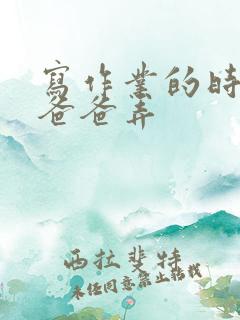 寫作業的時
爸爸弄
西拉斐特
未经同意禁止转载